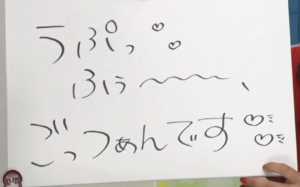 うぷっ♡♡
ふぅ〜〜、
ごっつぁんです♡♡